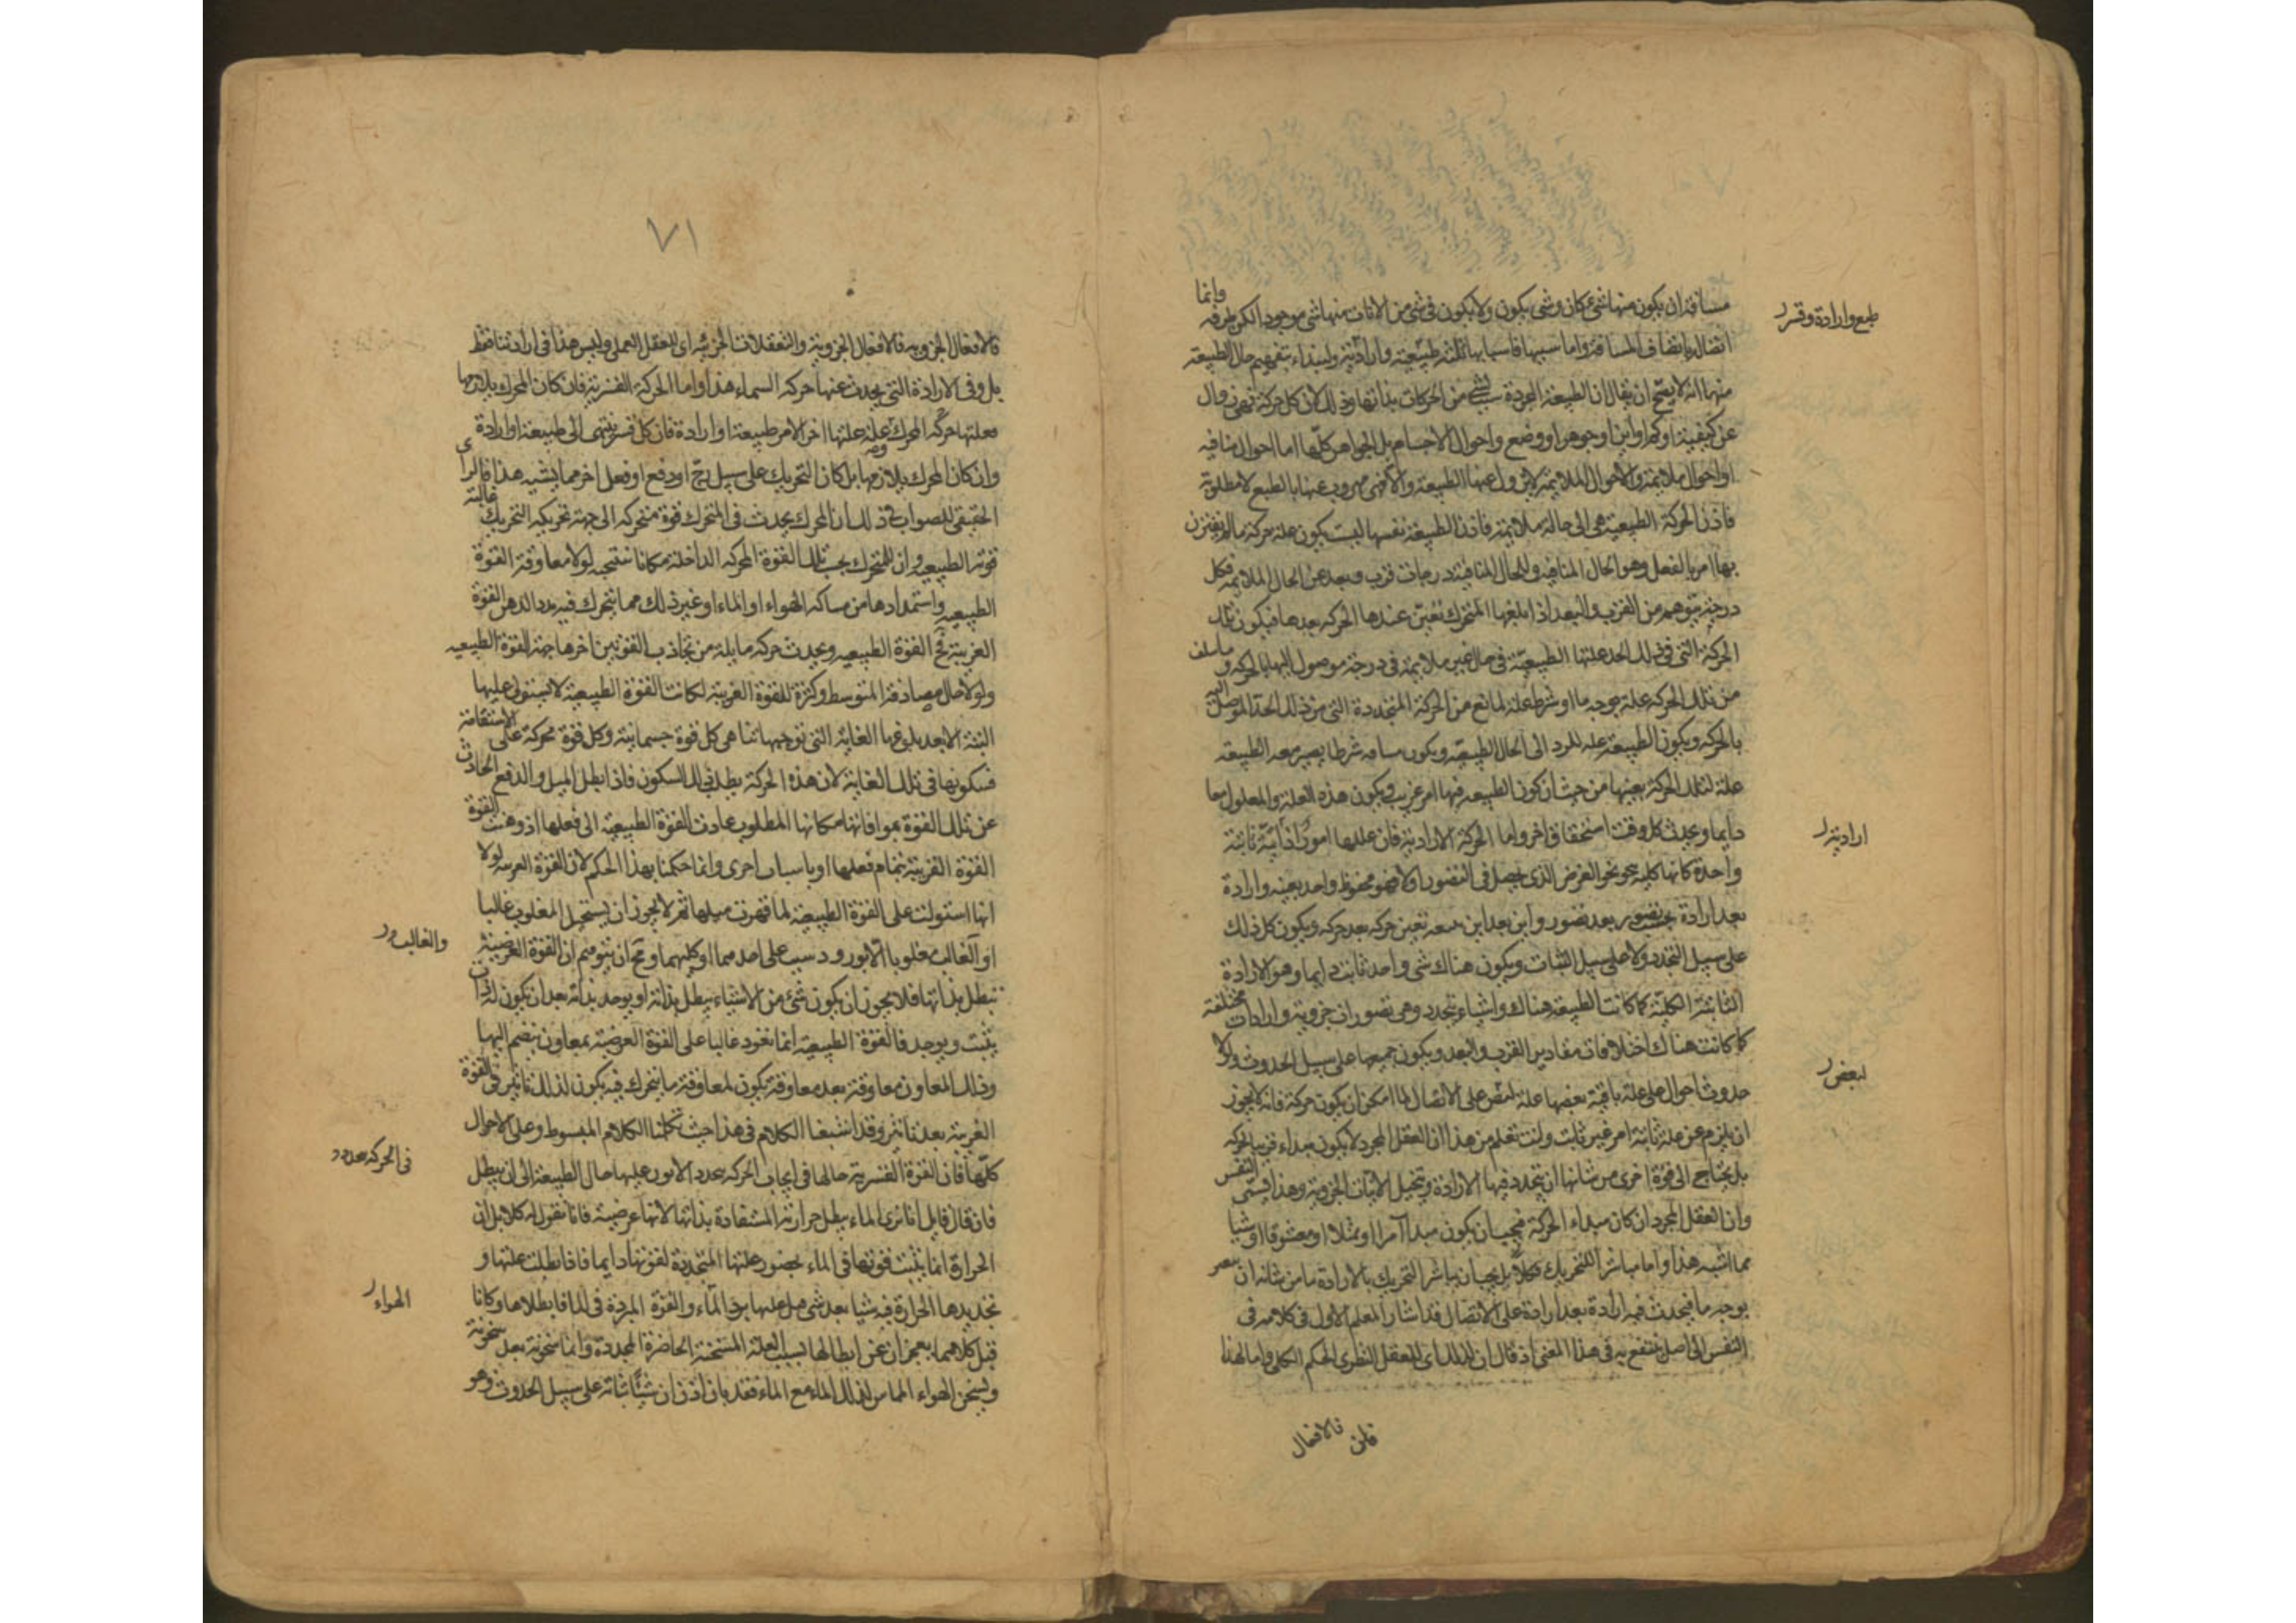 مسافة ان يكون منها شئ كان وشئ يكون ولا يكون فى شئ من الانات منها شئ موجودا لكن طرفه وانما
اتصاله باتصاف المسافة واما سببها فاسبابها ثلثة طبيعية وارادية ولنبداء بتفهيم حال الطبيعية
طبع وارادة وقسر
منها انه لا يصح ان يقال ان الطبيعة المجردة سبب لشئ من الحركات بذاتها وذلك لان كل حركة فهى زوال
عن كيفية او كم او اين او جوهر او وضع واحوال الاجسام بل الجواهر كلها اما احوال منافيه
او احوال ملايمة والاحوال الملايمة لا يزول عنها الطبيعة والا فهى مهروب عنها بالطبع لا مطلوبة
فاذن الحركة الطبيعية هى الى حالة ملايمة فاذن الطبيعة نفسها ليست يكون علة حركة ما لم يقترن
بها امر بالفعل وهو الحال المنافية وللحال المنافية درجات قرب وبعد عن الحال الملايمة فكل
درجة يتوهم من القرب والبعد اذا بلغها المتحرك تعين عندها الحركه بعدها فيكون تلك
الحركة التى فى ذلك الحد علتها الطبيعية فى حال غير ملايمة فى درجة موصول اليها بالحركه و ما سلف
من تلك الحركة علة بوجه ما او شرط علة لمانع من الحركة المتجددة التى من ذلك الحد الموصل اليه
بالحركه ويكون الطبيعة علة للرد الى الحال الطبيعية ويكون مسافه شرطا يصير معه الطبيعه
علة لتلك الحركة بعينها من حيث ان كون الطبيعه فيها امر غريب ويكون هذه العلة والمعلول معا
دايما ويحدث كل وقت استحقاق اخر واما الحركة الارادية فان عللها امور ارادية ثابتة
اراديته
واحدة كانها كلية نحو نحو الغرض الذى يحصل فى التصور اولا فهو محفوظ واحد بعينه وارادة
بعد ارادة بحسب تصور بعد تصور واين بعد اين معه تعين حركه بعد حركه ويكون كل ذلك
على سبيل التجدد ولا على سبيل الثبات ويكون هناك شى واحد ثابت دايما وهو الارادة
الثابتة الكلية كما كانت الطبيعة هناك واشياء تتجدد وهى تصورات جزوية وارادات مختلفة
كما كانت هناك اختلافات مقادير القرب والبعد ويكون جميعها على سبيل الحدوث ولولا
لبعض
حدوث احوال على علة باقية بعضها علة لبعض على الاتصال لما امكن ان يكون حركة فانه لا يجوز
ان يلزم عن علة ثابتة امر غير ثابت وانت تعلم من هذا ان العقل المجرد لا يكون مبداء قريبا لحركه
بل يحتاج الى قوة اخرى من شانها ان تتجدد فيها الارادة وتتخيل الاينات الجزوية وهذا يسمى النفس
وان العقل المجرد ان كان مبداء الحركة فيجب ان يكون مبدا آمرا او ممثلا او معشوقا او شيا
مما اشبه هذا واما مباشرا للتحريك فكلا بل يجب ان يباشر التحريك بالارادة ما من شانه ان
بوجه ما فيحدث فيه ارادة بعد ارادة على الاتصال فقد اشار المعلم الاول فى كلامه فى
النفس الى اصل ينتفع به فى هذا المعنى اذ قال ان لذلك اى للعقل النظرى الحكم الكلى واما لهذا
فالافعال
٧١
فالافعال الجزويه فالافعال الجزوية والتعقلات الجزيئه اى للعقل العملى وليس هذا فى ارادتنا فقط
بل وفى الارادة التى يحدث عنها حركه السماء هذا واما الحركة القسرية فان كان المحرك يلازمها
فعلتها حركه المحرك وعلة علتها اخر الامر طبيعة او ارادة فان كل قسر ينتهى الى طبيعة او ارادة
وان كان المحرك لا يلازمها بل كان التحريك على سبيل زج او دفع او فعل اخر مما يشبه هذا فالراى
الحقيقى الصواب فى ذلك ان المحرك يحدث فى المتحرك قوة متحركه الى جهة تحريكه التحريك غالبة
قوته الطبيعيه وان للمتحرك بحسب تلك القوة المحركه الداخلة مكانا ينتحيه لولا معاوقة القوة
الطبيعيه واستمدادها من مماسكه الهواء او الماء او غير ذلك مما يتحرك فيه مددا لوهن القوة
الغريبة فتح القوة الطبيعيه ويحدث حركه مايلة من تجاذب القوتين اخرها جهة القوة الطبيعيه
ولولا حال مصادفة المتوسط وكثرة للقوة الغريبة لكانت القوة الطبيعية لا تستولى عليها
البتة الا بعد بلوغها الغاية التى توجبها تناهى كل قوة جسمانية وكل قوة محركة على الاستقامة
فسكونها فى تلك الغاية لان هذه الحركة يطلب ذلك السكون فاذا بطل الميل والدفع الحادث
عن تلك القوة بموافاتها مكانها المطلوب عادت القوة الطبيعية الى فعلها اذ وهنت القوة
القوة القريبة بتمام فعلها او باسباب اخرى وانما حكمنا بهذا الحكم لان القوة الغريبه لولا
انها استولت على القوة الطبيعية لما قهرت ميلها ثم لا يجوز ان يستحيل المغلوب غالبا
والغالب
او الغالب مغلوبا الا بورود سبب على احدهما او كليهما ومح ان يتوهم ان القوة العرضية
تبطل بذاتها فلا يجوز ان يكون شئ من الاشياء يبطل بذاته او يوجد بذاته بعد ان يكون له ذات
يثبت ويوجد فالقوة الطبيعية انما تعود غالبا على القوة العرضية بمعاون ينضم اليها
وذلك المعاون معاوقة بعد معاوقة يكون لمعاوقة ما يتحرك فيه يكون لذلك تاثير فى القوة
الغريبة بعد تاثير وقد اشبعنا الكلام فى هذا حيث تكلمنا الكلام المبسوط وعلى الاحوال
فى الحركه تجدد
كلها فان القوة القسرية حالها فى ايجاب الحركه تجدد الامور عليها حال الطبيعة الى ان يبطل
فان قال قايل انا نرى الماء يبطل حرارته المستفادة بذاتها لانها عرضية فانا نقول له كلا بل ان
الحرارة انما يثبت قوتها فى الماء بحضور علتها المتجددة لقوتها دايما فاذا بطلت علتها و
الهواء
تجديدها الحرارة فيه شيا بعد شى حمل عليها برد الماء والقوة المبردة فى الماء فابطلاها وكانا
قبل كلاهما يعجزان عن ابطالها بسبب العلة المسخنة الحاضرة المجددة وانما سخونة بعد سخونة
ويسخن الهواء المماس لذلك الماء مع الماء فقد بان اذن ان شيئا ثباته على سبيل الحدوث وهو